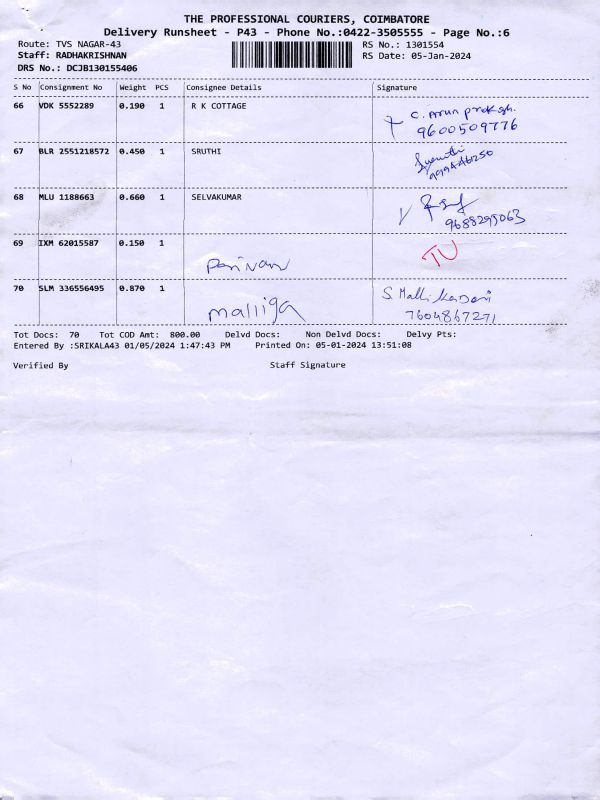 THE PROFESSIONAL COURIERS, COIMBATORE
Delivery Runsheet - P43 - Phone No.:0422-3505555 - Page No.:6
Route: TVS NAGAR-43 RS No.: 1301554
Staff: RADHAKRISHNAN RS Date: 05-Jan-2024
DRS No.: DCJB130155406
S No Consignment No Weight PCS Consignee Details Signature
66 VDK 5552289 0.190 1 R K COTTAGE C. Arun prakash.
9600509776
67 BLR 2551218572 0.450 1 SRUTHI
68 MLU 1188663 0.660 1 SELVAKUMAR
9688295063
69 IXM 62015587 0.150 1 TU
70 SLM 336556495 0.870 1 malliga S. Malli
7604867271
Tot Docs: 70 Tot COD Amt: 800.00 Delvd Docs: Non Delvd Docs: Delvy Pts:
Entered By :SRIKALA43 01/05/2024 1:47:43 PM Printed On: 05-01-2024 13:51:08
Verified By Staff Signature